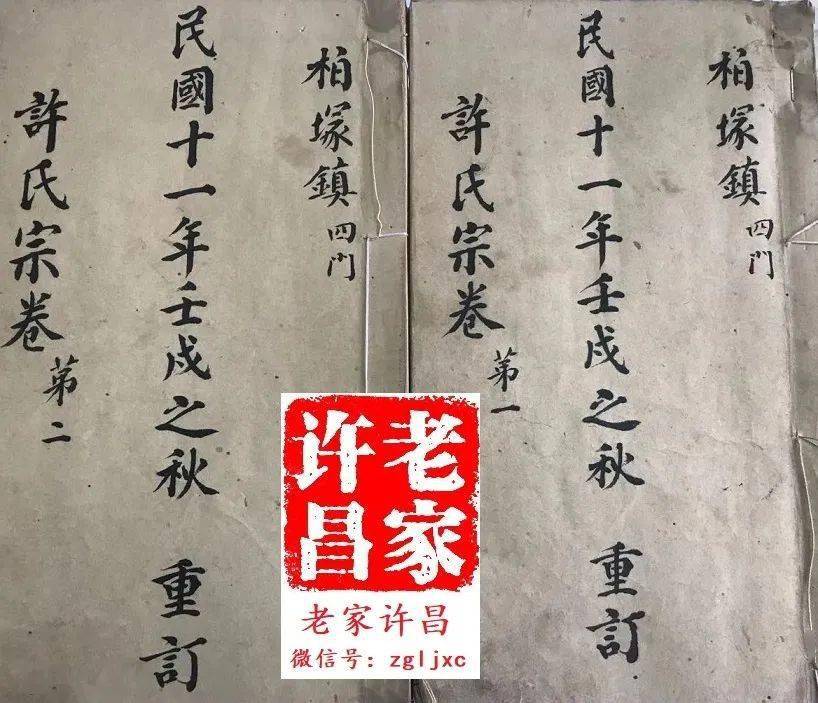 柏塚鎮 四門
民國十一年壬戌之秋 重訂
許氏宗卷 第一
柏塚鎮 四門
民國十一年壬戌之秋 重訂
許氏宗卷 第二
老家
许昌
老家许昌
微信号：zgljxc